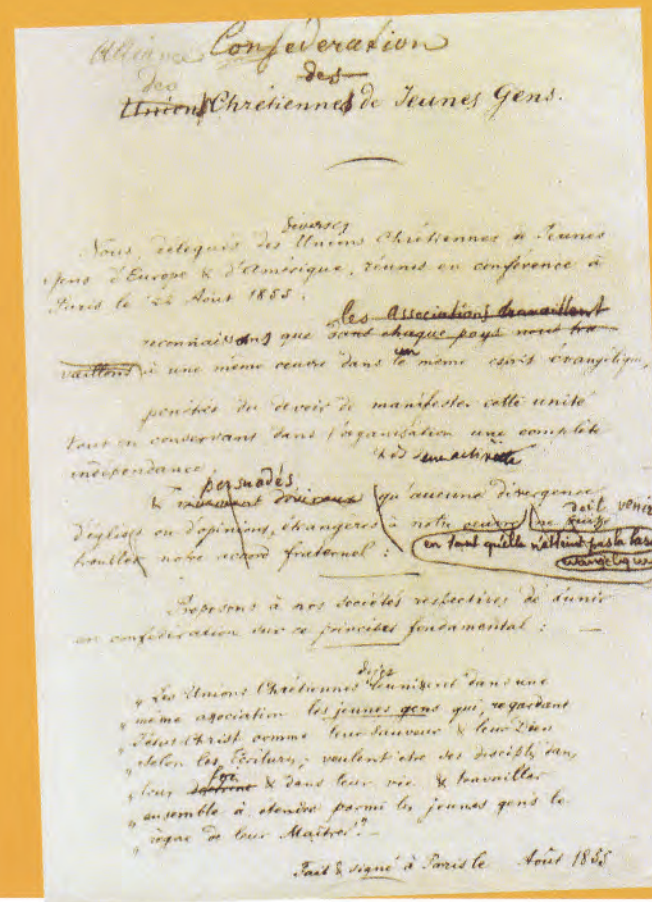 Alliance Confédération
des des
Unions Chrétiennes de Jeunes Gens.
diverses
Nous, délégués des Unions Chrétiennes de Jeunes
gens d'Europe & d'Amérique, réunis en conférence à
Paris le 22 Août 1855.
les Associations travaillent
reconnaissons que dans chaque pays nous tra
vaillons à une même oeuvre dans le même esprit évangélique,
un
pénétrés du devoir de manifester cette unité
tout en conservant dans l'organisation une complète
indépendance,
persuadés
& vivement désireux qu'aucune divergence
doit venir
d'églises ou d'opinions, étrangères à notre oeuvre ne puisse
troubler notre accord fraternel :
en tant qu'elle n'atteint pas la base
évangélique
Proposons à nos sociétés respectives de s'unir
en confédération sur ce principe fondamental : —
„ Les Unions Chrétiennes réunissent dans une
„ même association les jeunes gens qui, regardant
„ Jésus Christ comme leur Sauveur & leur Dieu
„ selon les Écritures, veulent être ses disciples dans
foi
„ leur doctrine & dans leur vie & travailler
„ ensemble à étendre parmi les jeunes gens le
„ règne de leur Maître." —
Fait & signé à Paris le Août 1855